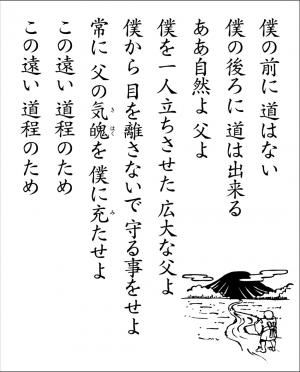 僕の前に 道はない
僕の後ろに 道は出来る
ああ自然よ 父よ
僕を一人立ちさせた 広大な父よ
僕から 目を離さないで 守る事をせよ
常に 父の気魄を 僕に充たせよ
この遠い 道程のため
この遠い 道程のため